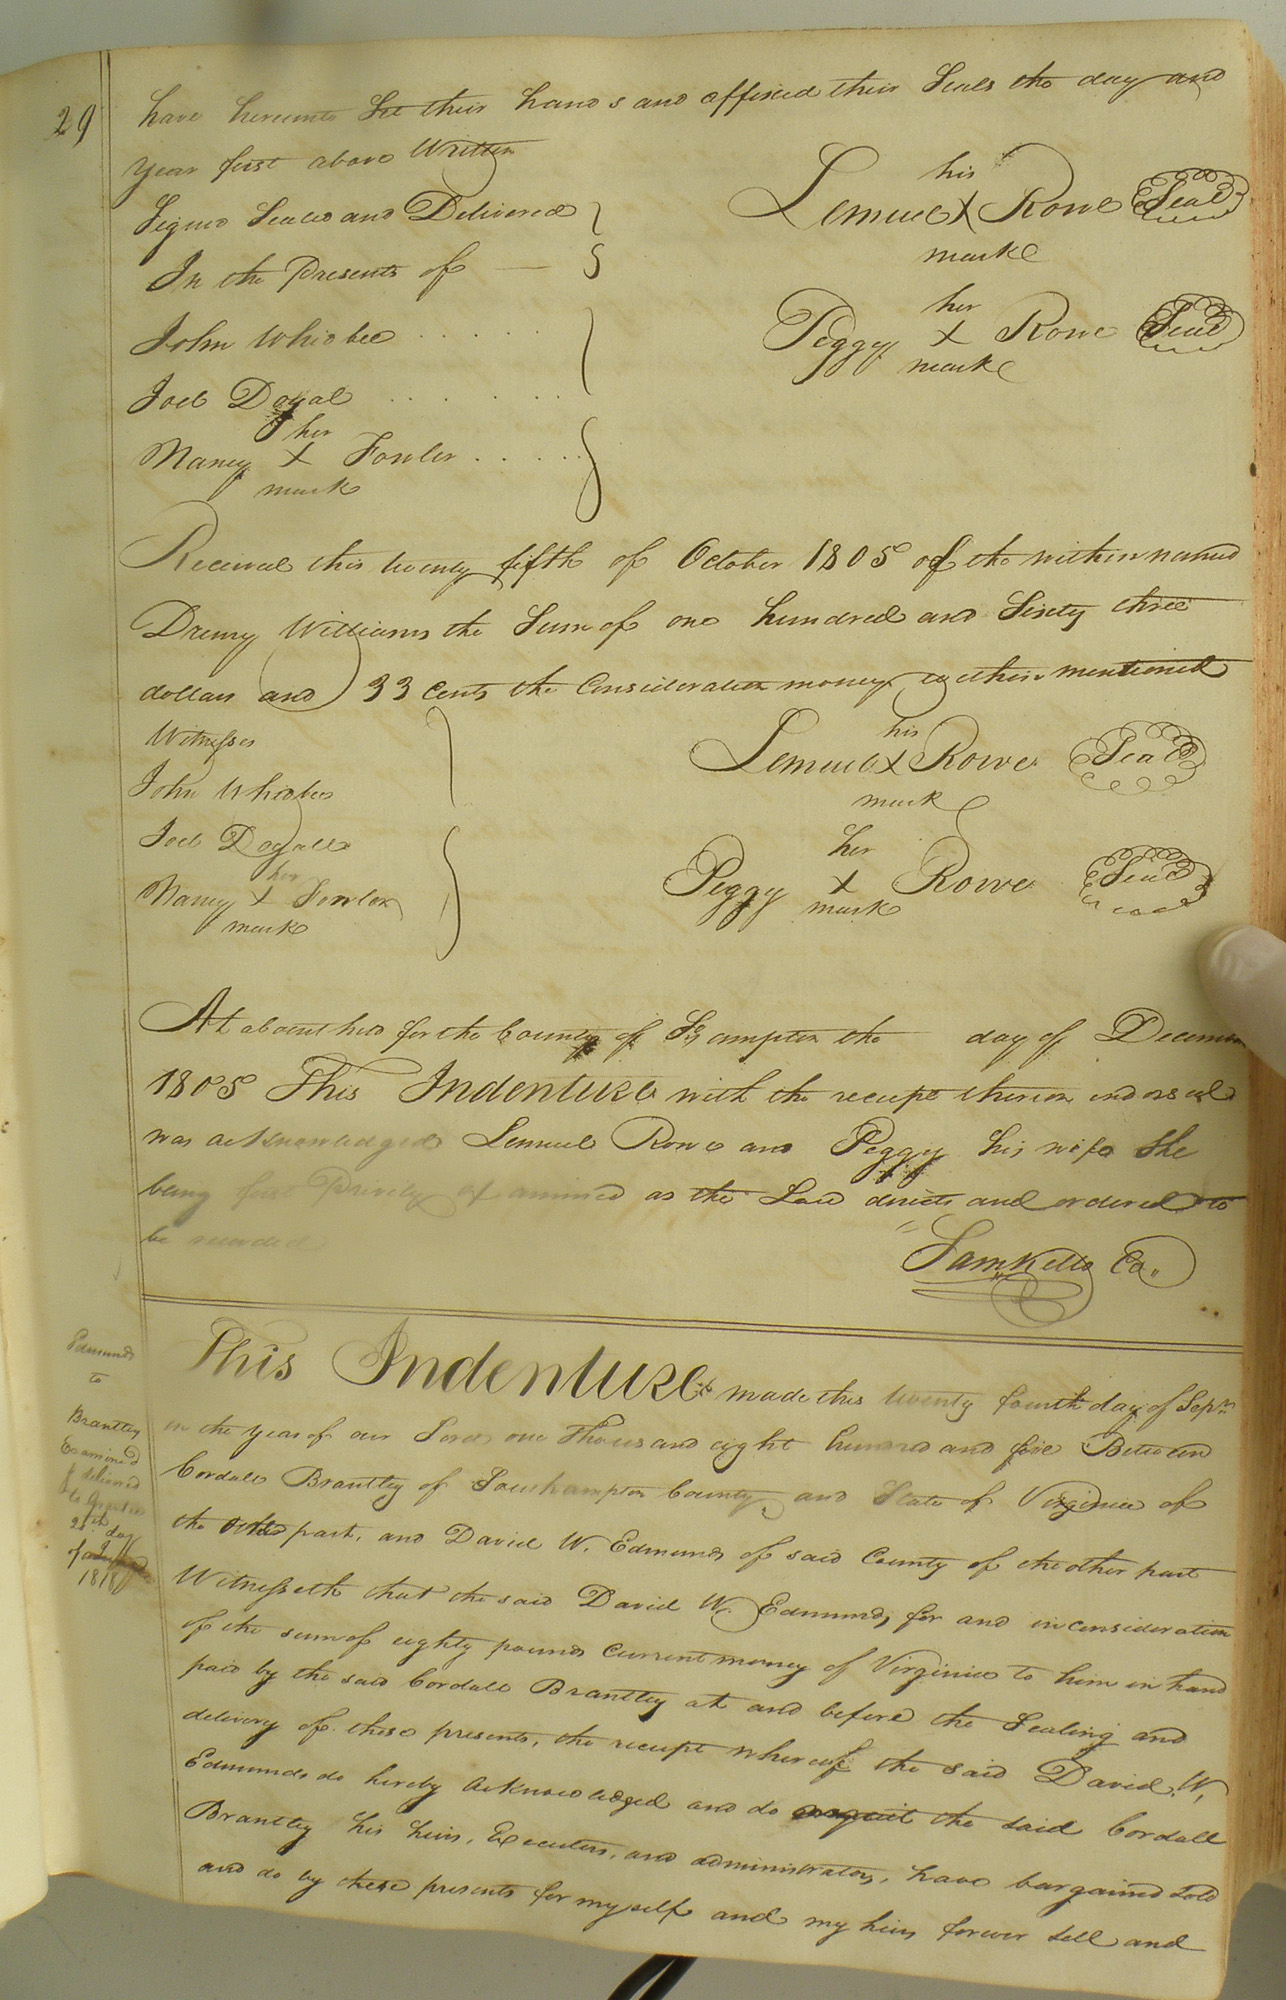 29
have hereunto Set their hands and affixed their Seals the day and
Year first above Written
Signed Sealed and Delivered
In the Presents of —
his
Lemuel X Rowe Seal
mark
her
Peggy X Rowe Seal
mark
John Whidbee . . . . . .
Joel Doyal . . . . . . .
her
Nancy X Fowler . . . . .
mark
Received this twenty fifth of October 1805 of the within named
Drewry Williams the Sum of one hundred and Sixty three
dollars and 33 Cents the Consideration money within mentioned
Witnesses
John Whidbee
Joel Doyall
her
Nancy X Fowler
mark
his
Lemuel X Rowe Seal
mark
her
Peggy X Rowe Seal
mark
At a Court held for the County of Southampton the day of December
1805 This Indenture with the receipt thereon endorsed
was acknowledged Lemuel Rowe and Peggy his wife She
being first Privily examined as the Law directs and ordered to
be recorded
Sam Kello Co,,
Edmunds
to
Brantley
Examined
& delivered
to Grantee
25th day
of
1818
This Indenture made this twenty fourth day of Sepr
in the year of our Lord one Thousand eight hundred and five Between
Cordall Brantley of Southampton County and State of Virginia of
the part, and David W. Edmunds of said County of the other part
Witnesseth that the said David W. Edmunds, for and in consideration
of the sum of eighty pounds Current money of Virginia to him in hand
paid by the said Cordall Brantley at and before the Sealing and
delivery of these presents, the receipt whereof the said David W,
Edmunds do hereby Acknowledged and do acquit the said Cordall
Brantley his heirs, Executors, and administrators, have bargained Sold
and do by these presents for my self and my heirs forever Sell and